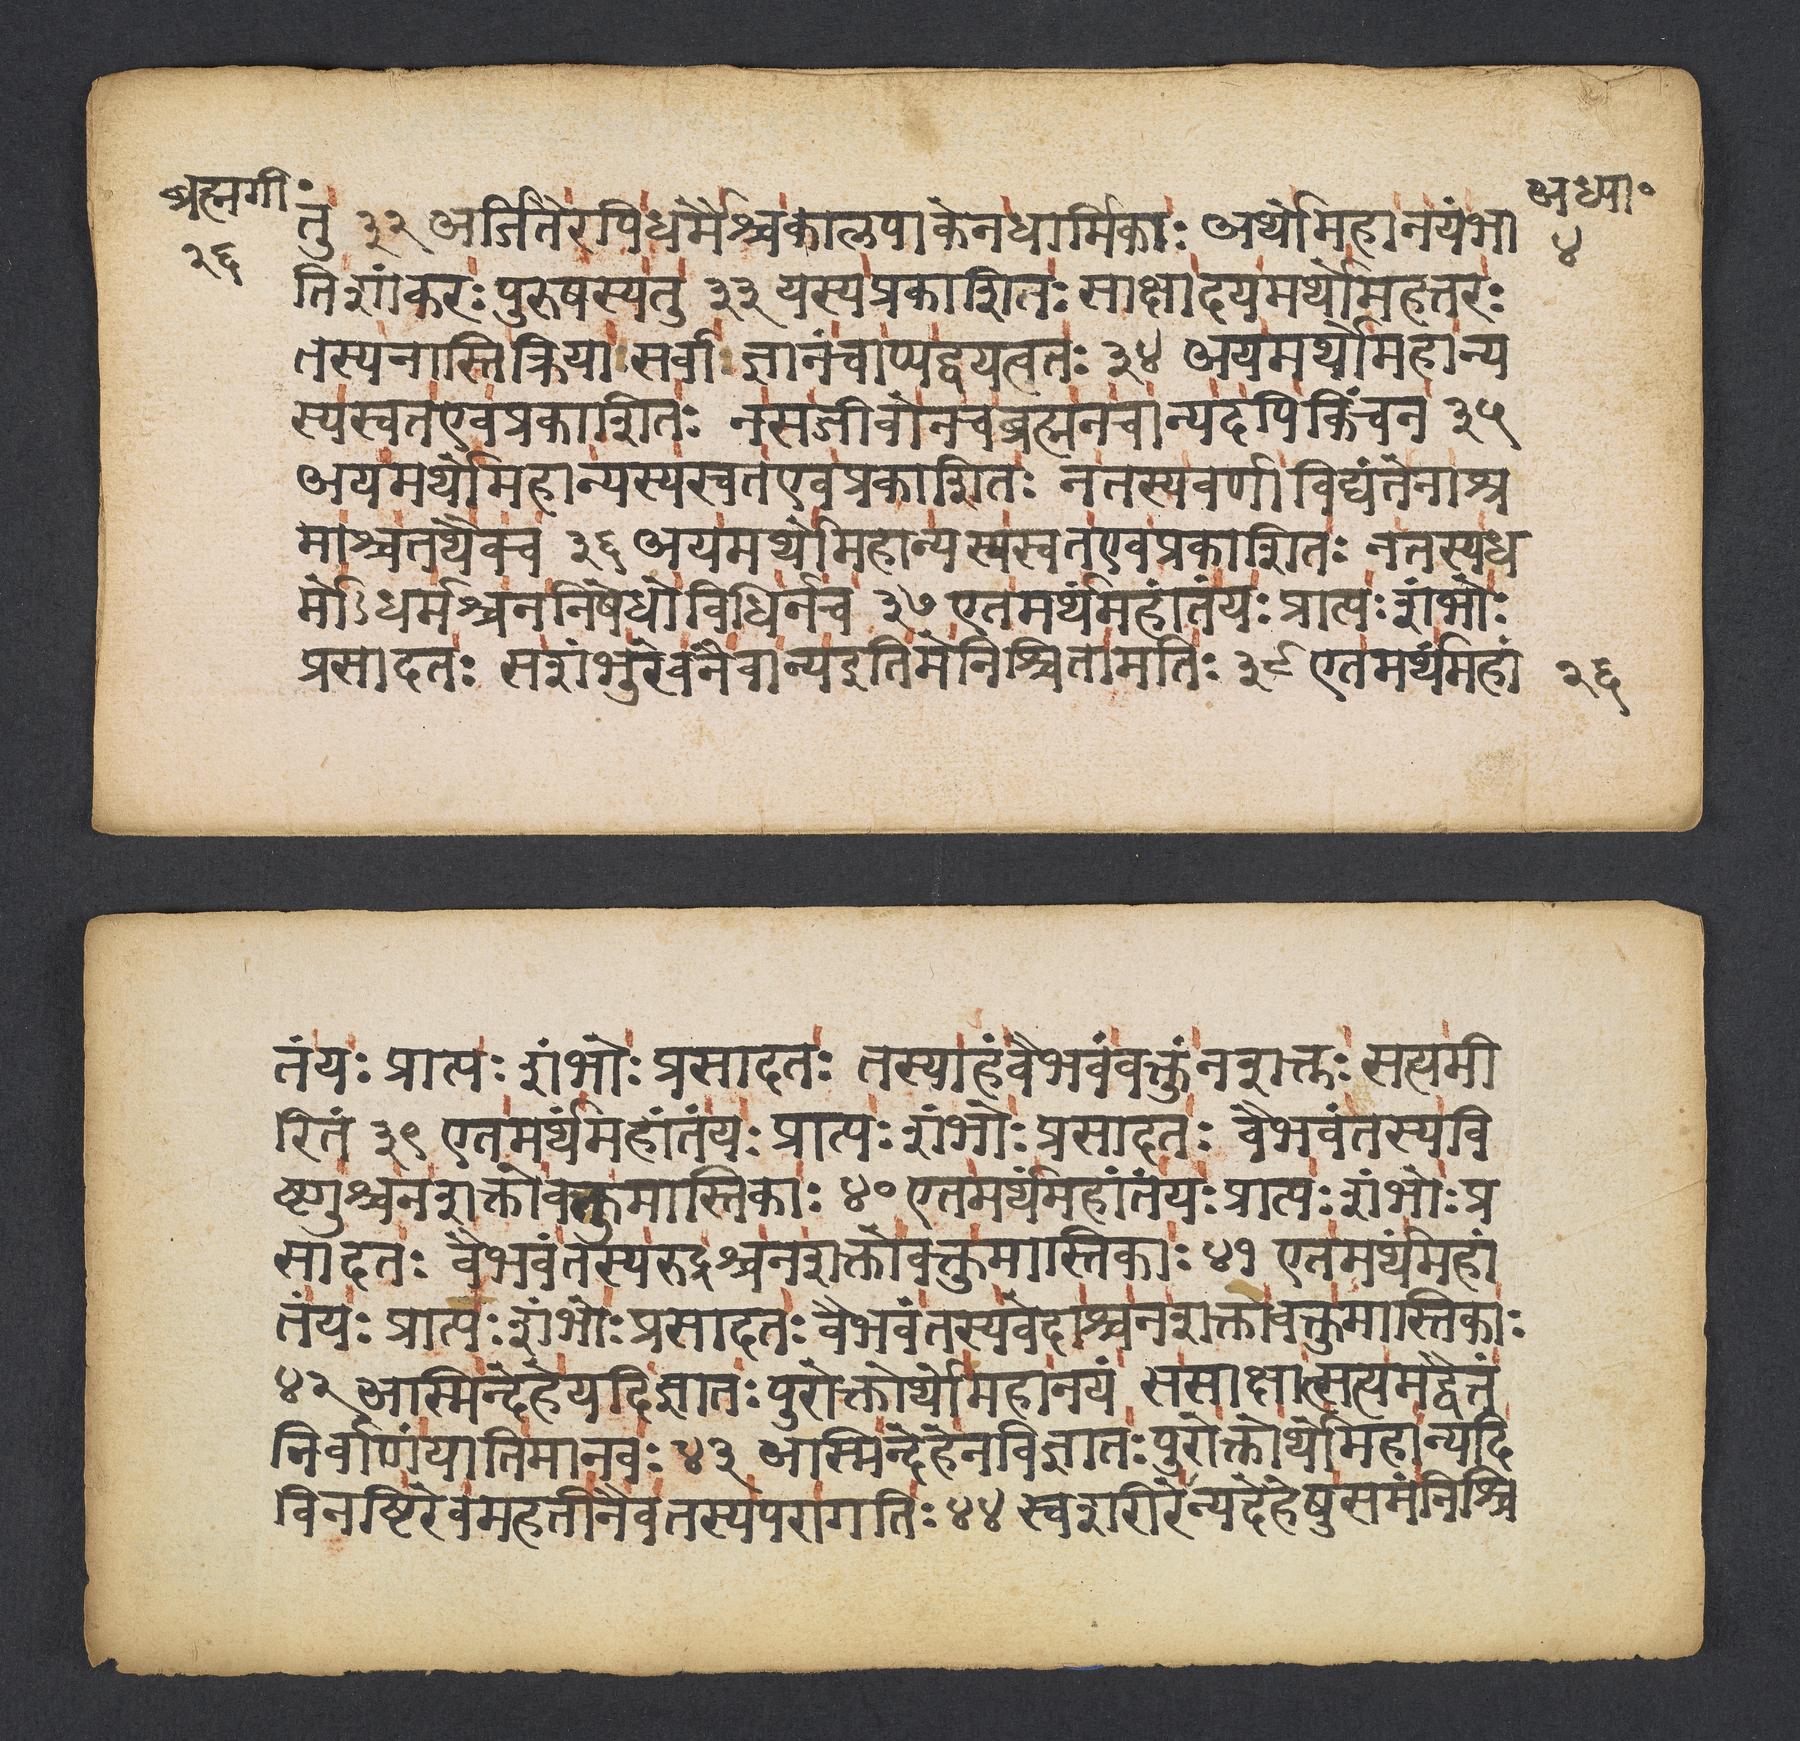 ब्रह्मगी॰
२६
अध्या॰
४
तु ३२ अर्जितैरपिधर्मैश्चकालपाकेनधार्मिकाः अर्थोमहानयंभा
तिशांकरः पुरुषस्यतु ३३ यस्यप्रकाशितः साक्षादयमर्थोमहत्तरः
तस्यनास्तिक्रिया सर्वा ज्ञानंचाप्यद्वयत्वतः ३४ अयमर्थोमहान्य
स्यस्वतएवप्रकाशितः नसजीवोनचब्रह्मनचान्यदपिकिंचन ३५
अयमर्थोमहान्यस्यस्वतएवप्रकाशितः नतस्यवर्णाविद्यंतेनाश्र
माश्चतथैवच ३६ अयमर्थोमहान्यस्यस्वतएवप्रकाशितः नतस्यध
र्मोऽधर्मश्चननिषेधोविधिर्नच ३७ एतमर्थंमहांतंयः प्राप्तः शंभोः
प्रसादतः सशंभुरेवनैवान्यइतिमेनिश्चितामतिः ३८ एतमर्थंमहां
२६
तंयः प्राप्तः शंभोः प्रसादतः तस्याहंवैभवंवक्तुंनशक्तः सत्यमी
रितं ३९ एतमर्थंमहांतंयः प्राप्तः शंभोः प्रसादतः वैभवंतस्यवि
ष्णुश्चनशक्तोवक्तुमास्तिकाः ४० एतमर्थंमहांतंयः प्राप्तः शंभोः प्र
सादतः वैभवंतस्यरुद्रश्चनशक्तोवक्तुमास्तिकाः ४१ एतमर्थंमहां
तंयः प्राप्तः शंभोः प्रसादतः वैभवंतस्यवेदाश्चनशक्तावक्तुमास्तिकाः
४२ अस्मिन्देहेयदिज्ञातः पुरोक्तोर्थोमहानयं ससाक्षात्सत्यमद्वैतं
निर्वाणंयातिमानवः ४३ अस्मिन्देहेनविज्ञातः पुरोक्तोर्थोमहान्यदि
विनष्टिरेवमहतीनैवतस्यपरागतिः ४४ स्वशरीरेन्यदेहेषुसमंनिश्चि